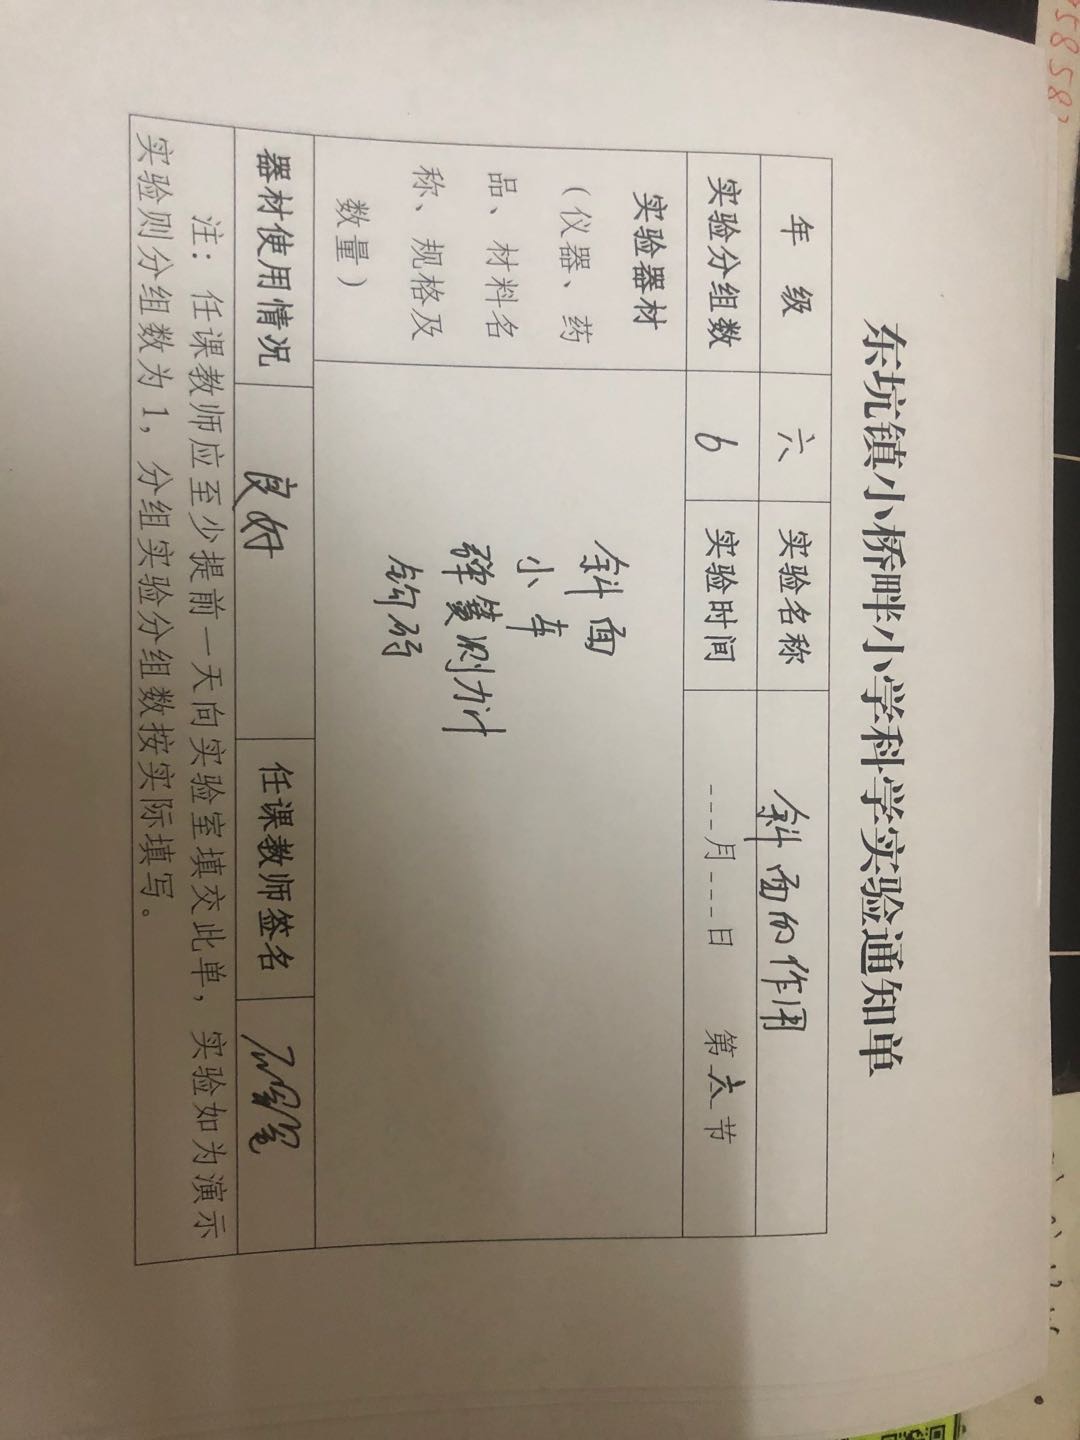 东坑镇小桥畔小学科学实验通知单
年 级 六 实验名称 斜面的作用
实验分组数 6 实验时间 ---月---日 第六节
实验器材
（仪器、药
品、材料名
称、规格及
数量）
斜面
小车
弹簧测力计
钩码
器材使用情况 良好 任课教师签名
注：任课教师应至少提前一天向实验室填交此单，实验如为演示
实验则分组数为1，分组实验分组数按实际填写。